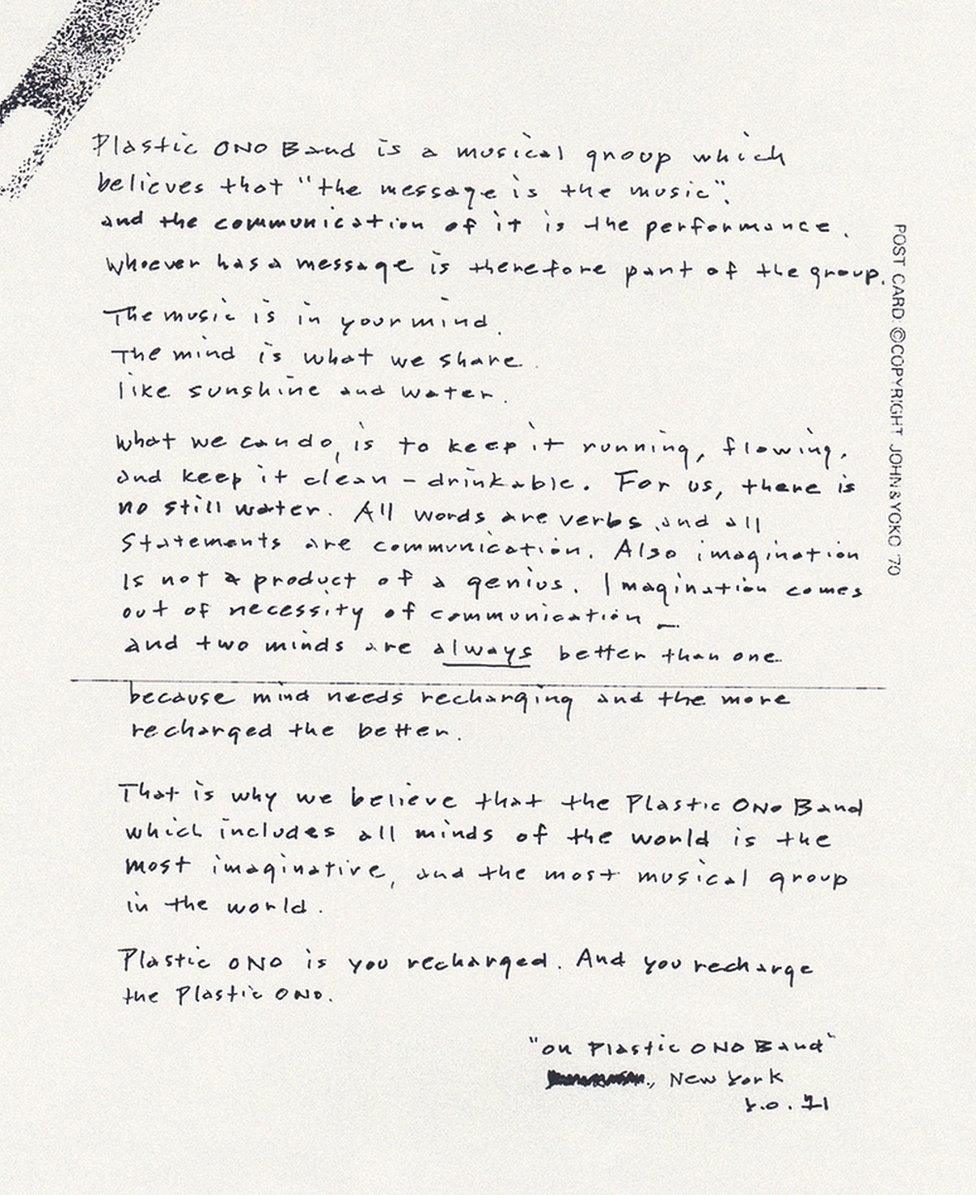 Plastic ONO Band is a musical group which
believes that "the message is the music".
and the communication of it is the performance.
Whoever has a message is therefore part of the group.
The music is in your mind.
The mind is what we share.
like sunshine and water.
What we can do, is to keep it running, flowing.
and keep it clean – drinkable. For us, there is
no still water. All words are verbs, and all
statements are communication. Also imagination
is not a product of a genius. Imagination comes
out of necessity of communication –
and two minds are always better than one
because mind needs recharging and the more
recharged the better.
That is why we believe that the Plastic ONO Band
which includes all minds of the world is the
most imaginative, and the most musical group
in the world.
Plastic ONO is you recharged. And you recharge
the Plastic ONO.
"on Plastic ONO Band"
, New York
Y.O. 71
POST CARD: ©COPYRIGHT JOHN & YOKO '70